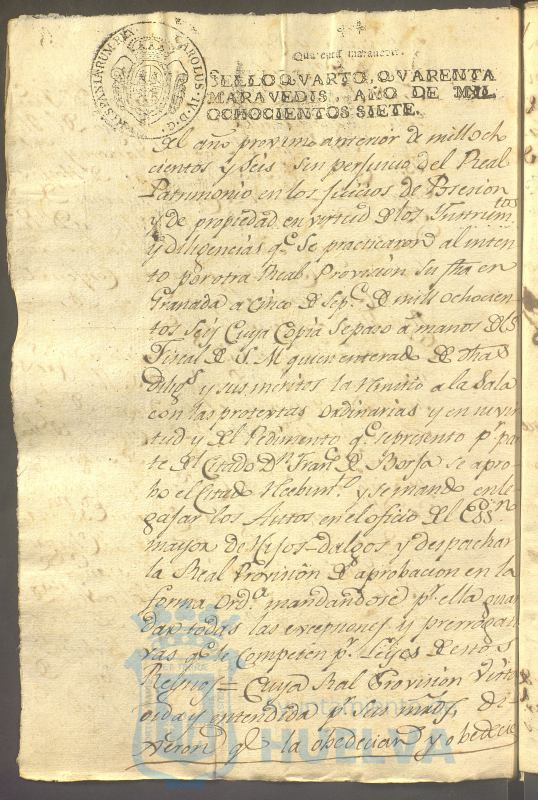 CAROLUS IV D G HISPANIARUM REX
Quarenta maravedis.
SELLO QVARTO, QVARENTA
MARAVEDIS, AÑO DE MIL
OCHOCIENTOS SIETE.
del año proximo anterior de mill ocho
cientos y Seis sin perjuicio del Real
Patrimonio en los Juicios de Posesion
y de propiedad en virtud de los Instrumtos
y diligencias qe. Se practicaron al inten
to por otra Real Provision Su fha en
Granada a cinco de Sepe. de mill ochocien
tos Seis Cuya Copia Se paso a manos del
Fiscal de S. M. quien enterado de dhas
diligs. y sus meritos la remitio a la Sala
con las protextas ordinarias y en su vir
tud y del Pedimento qe. se presento pr. par
te del Citado Dn. Franco. de Borja se apro
bo el Citado Recebimto. y se mando en le
gajar los Autos en el oficio del
mayor de Hijos-dalgos y despachar
la Real Provision de aprobacion en la
forma Orda. mandandose pr. ella guar
dar todas las excepciones y prerrogati
vas qe. le competen pr. Leyes de estos
Reynos = Cuya Real Provision Vista
oida y entendida pr. Sus mrds. di
xeron qe. la obedecian y obedecie
Ayuntamiento
HUELVA